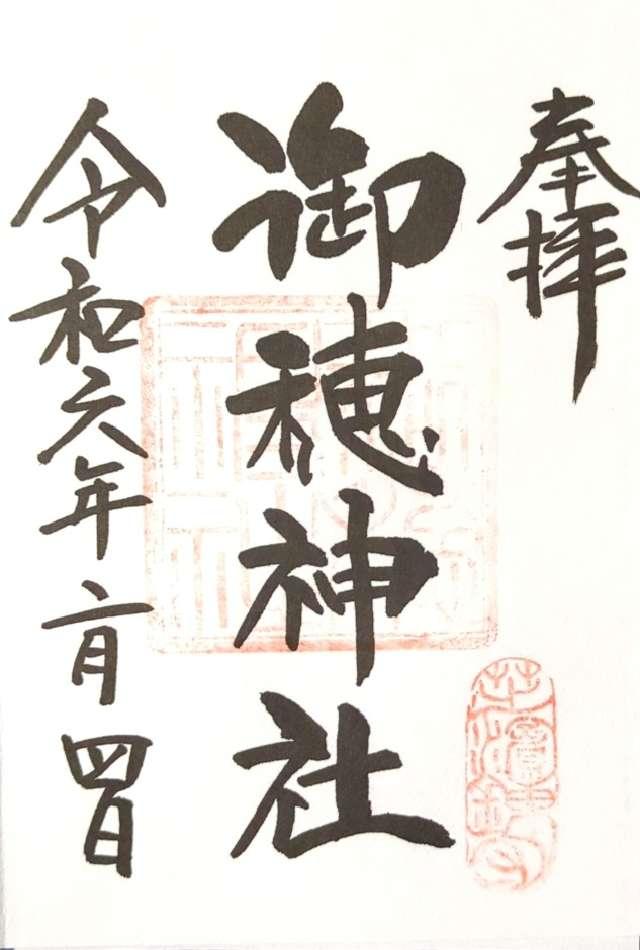 奉拝
御穂神社
令和六年二月四日